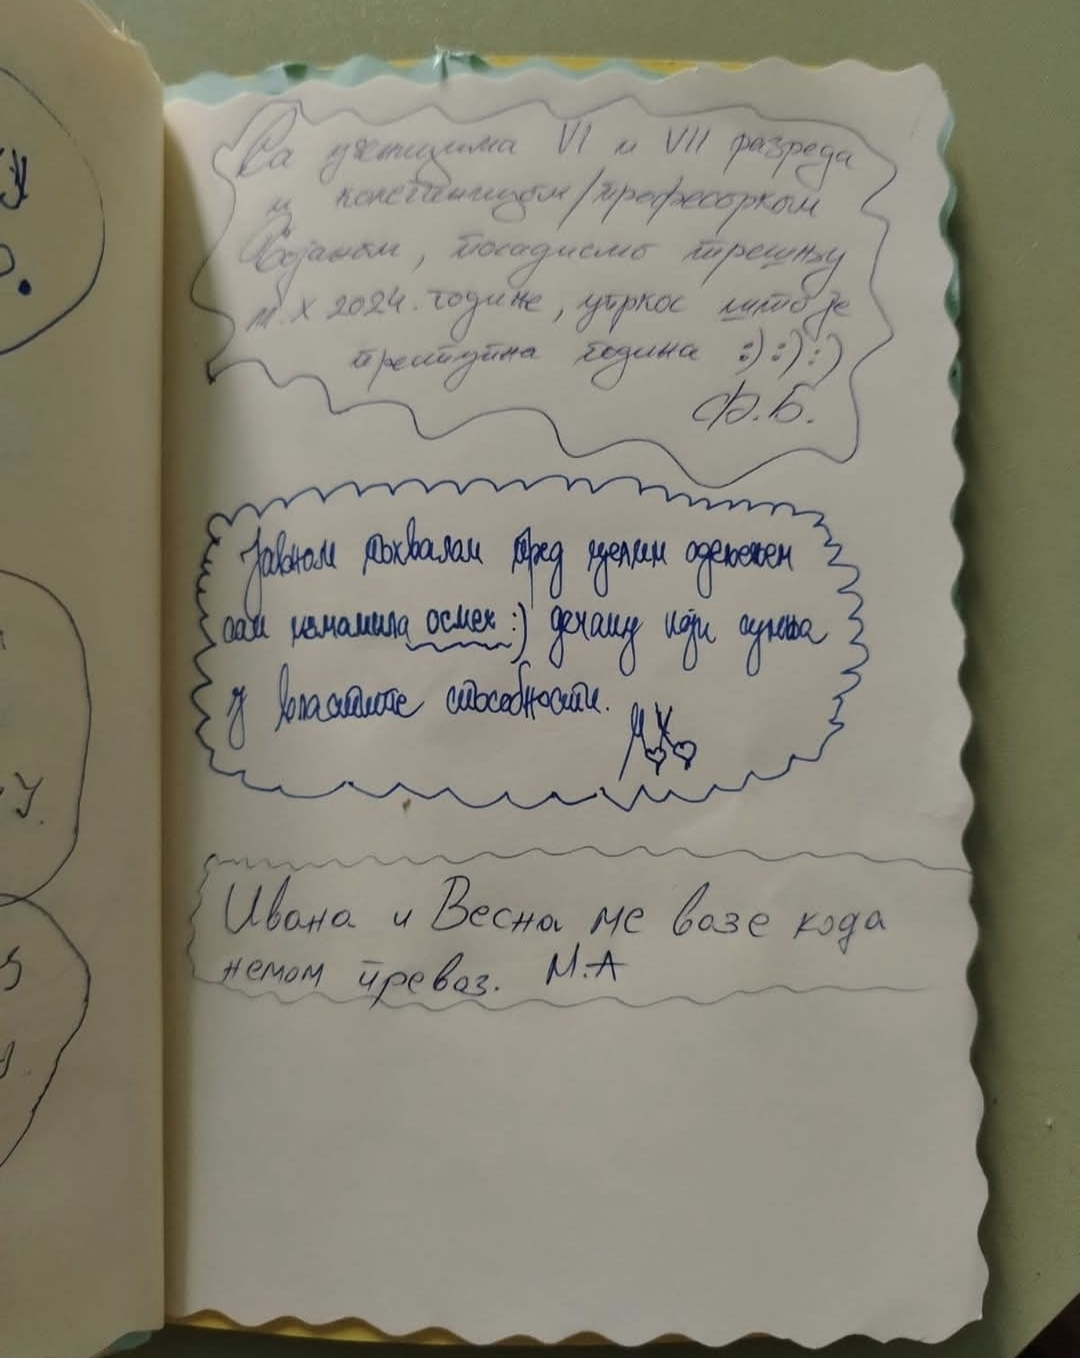 Са ученицима VI и VII разреда
и колегиницом/професорком
Бојаном, посадисмо трешњу
11. X 2024. године, упркос што је
преступна година :) :) :)
Ф.Б.
Јавном похвалом пред целим одељењем
сам измамила осмех :) дечаку који сумња
у властите способности.
МК
Ивана и Весна ме возе када
немам превоз. М.А